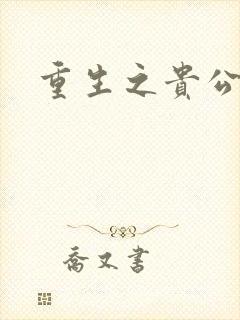 重生之貴公
喬又書